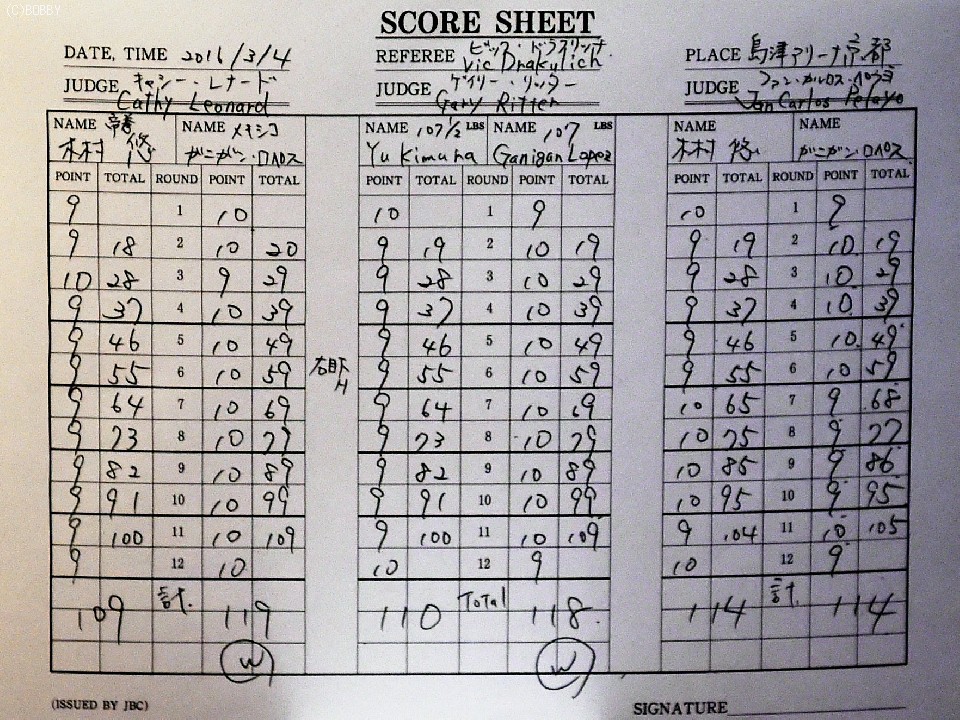 (C)BOBBY
SCORE SHEET
DATE, TIME 2016/3/4
REFEREE ビック・ドラクリッチ Vic Drakulich
PLACE 島津アリーナ京都
JUDGE キャシー・レナード Cathy Leonard
JUDGE ゲイリー・リッター Gary Ritter
JUDGE ファン・カルロス・ペラヨ Jan Carlos Pelayo
NAME 帝拳 NAME メキシコ NAME 107½ LBS NAME 107 LBS NAME NAME
木村 悠 がニガン・ロペス Yu Kimura Ganigan Lopez 木村 悠 がニガン・ロペス
POINT TOTAL ROUND POINT TOTAL POINT TOTAL ROUND POINT TOTAL POINT TOTAL ROUND POINT TOTAL
9 1 10 10 1 9 10 1 9
9 18 2 10 20 9 19 2 10 19 9 19 2 10 19
10 28 3 9 29 9 28 3 10 29 9 28 3 10 29
9 37 4 10 39 9 37 4 10 39 9 37 4 10 39
9 46 5 10 49 9 46 5 10 49 9 46 5 10 49
9 55 6 10 59 9 55 6 10 59 9 55 6 10 59
9 64 7 10 69 9 64 7 10 69 10 65 7 9 68
9 73 8 10 79 9 73 8 10 79 10 75 8 9 77
9 82 9 10 89 9 82 9 10 89 10 85 9 9 86
9 91 10 10 99 9 91 10 10 99 10 95 10 9 95
9 100 11 10 109 9 100 11 10 109 9 104 11 10 105
9 12 10 10 12 9 10 12 9
109 計 119 110 Total 118 114 計 114
W W
(ISSUED BY JBC)
SIGNATURE